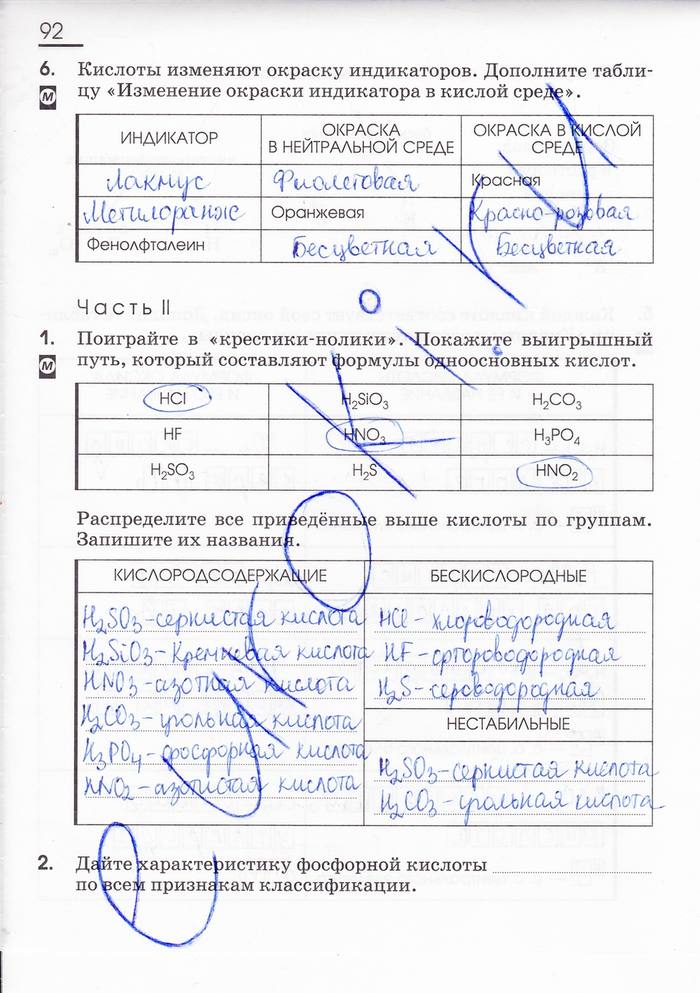 92
6. Кислоты изменяют окраску индикаторов. Дополните табли-
цу «Изменение окраски индикатора в кислой среде».
ИНДИКАТОР ОКРАСКА В НЕЙТРАЛЬНОЙ СРЕДЕ ОКРАСКА В КИСЛОЙ СРЕДЕ
Лакмус Фиолетовая Красная
Метилоранж Оранжевая Красно-розовая
Фенолфталеин Бесцветная Бесцветная
Часть II
1. Поиграйте в «крестики-нолики». Покажите выигрышный
М путь, который составляют формулы одноосновных кислот.
HCl H₂SiO₃ H₂CO₃
HF HNO₃ H₃PO₄
H₂SO₃ H₂S HNO₂
Распределите все приведённые выше кислоты по группам.
Запишите их названия.
КИСЛОРОДСОДЕРЖАЩИЕ БЕСКИСЛОРОДНЫЕ
H₂SO₃-сернистая кислота HCl - хлороводородная
H₂SiO₃-кремневая кислота HF - фтороводородная
HNO₃-азотная кислота H₂S-сероводородная
H₂CO₃-угольная кислота НЕСТАБИЛЬНЫЕ
H₃PO₄-фосфорная кислота H₂SO₃-сернистая кислота
HNO₂-азотистая кислота H₂CO₃-угольная кислота
2. Дайте характеристику фосфорной кислоты
по всем признакам классификации.